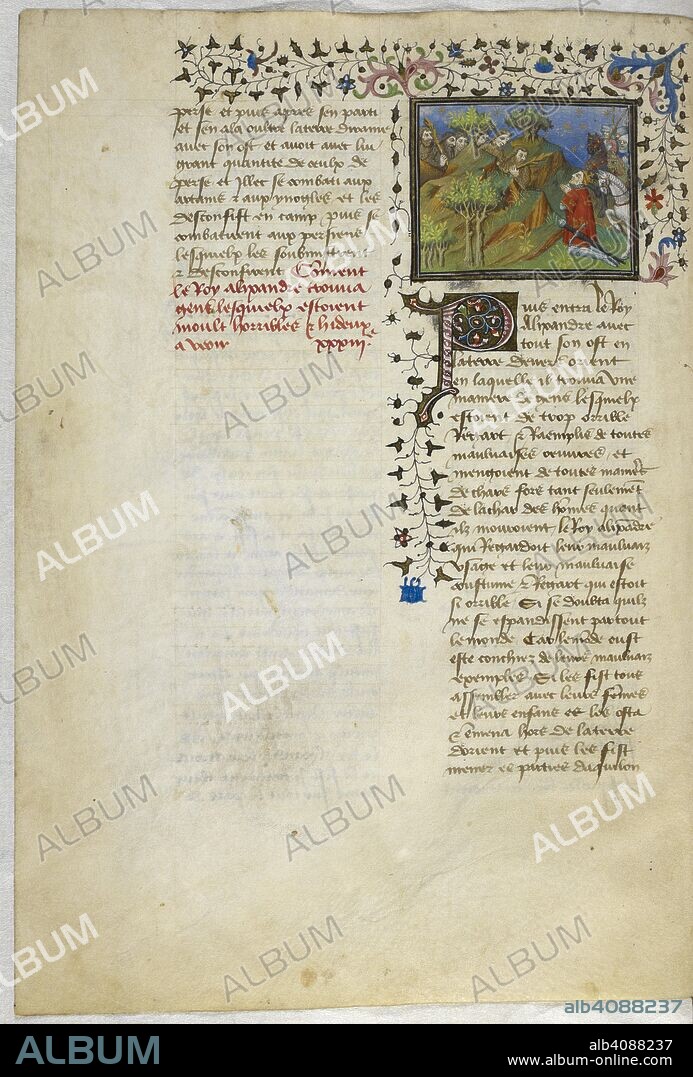 perse et puis apres sen parti
et sen ala oultre la terre dirame
avec son ost et avoit avec lui
grant quantite de ceulx de
perse et illec se combati aux
artams & aux ynogles et les
desconfist en camp, puis se
combatirent aux persiens
lesquelx les soubmistrent
& desconfirent Coment
le Roy alixandre trouva
gens lesquelx estoient
moult horribles & hideux
a veoir xxxiii
Puis entra le Roy
Alixandre avec
tout son ost en
la terre dever lorient
en laquelle il trouva une
maniere de gens lesquelx
estoient de trop orrible
Regart & Raemplis de toutes
mauluaises oeuvres, et
mengoient de toutes manieres
de chars fors tant seulement
de la char des homes quant
ilz mouroient le Roy alixadre
qui Regardoit leur mauluaix
usage et leur mauluaise
coustume & Regart qui estoit
si orrible, Si se doubta quilz
ne se espandissent par tout
le monde Car le mode eust
este conchiez de leurs mauluaix
exemples, Si les fist tous
assembler avec leurs femes
et leurs enfans et les osta
& emena hors de la terre
dorient et puis les fist
mener es parties daquilon
ALBUM
alb4088237
ALBUM
alb4088237
www.album-online.com